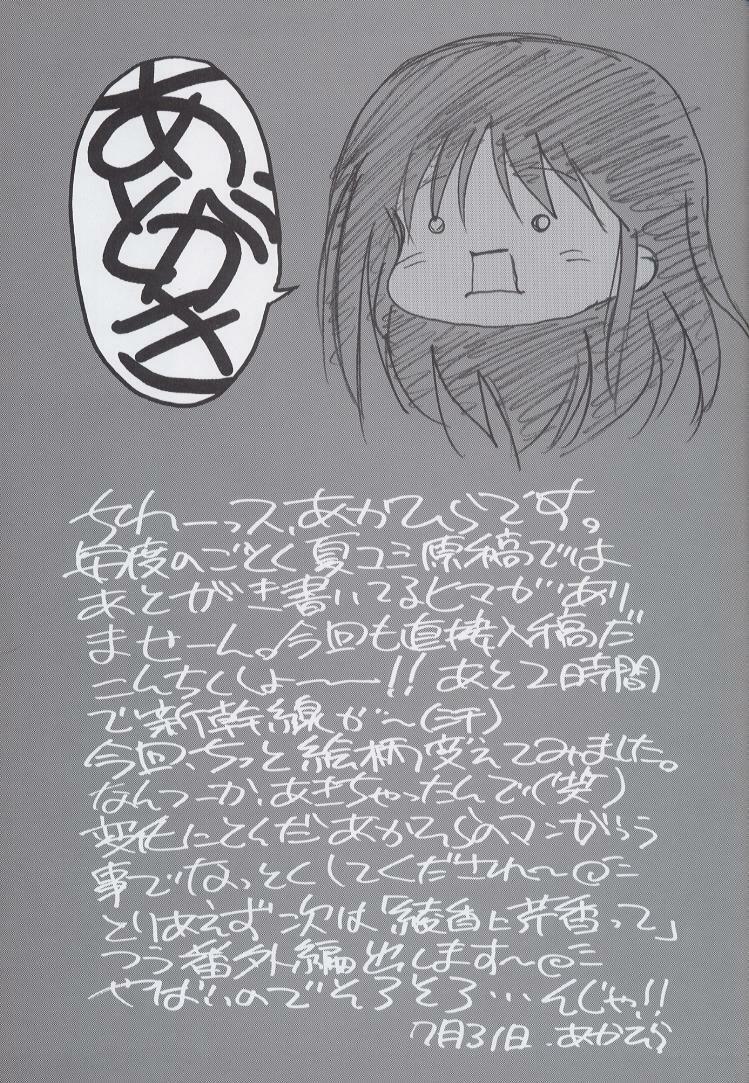 あとがき
ちわーっス、あかひらです。
毎度のごとく夏コミ原稿では
あとがき書いてるヒマがあり
ませーん。今回も直接入稿だ
こんちくしょーー!! あと2時間
で新幹線が〜(汗)
今回、ちっと絵柄変えてみました。
なんつーか、あきちゃったんで(笑)
変化にとんだあかひらのマンがっつう
事でなっとくしてくだされ〜
とりあえず次は「綾香と芹香って」
つう番外編出します〜
やばいのでそろそろ…んじゃ!!
7月31日.あかひら